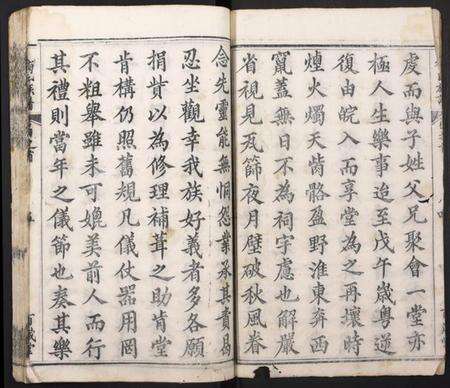 虔而與子姓父兄聚會一堂亦
極人生樂事迨至戊午歲粵逆
復由皖入而享堂為之再壞時
煉火燭天胔骼盈野淮東奔西
竄蓋無日不為祠宇慮也解嚴
省視見瓦篩夜月壁破秋風眷
念先靈能無恫怨業承其貴易
忍坐觀幸我族好義者多各願
捐貲以為修理補葺之助肯堂
肯構仍照舊規凡儀仗器用罔
不粗舉雖未可媲美前人而行
其禮則當年之儀節也奏其樂